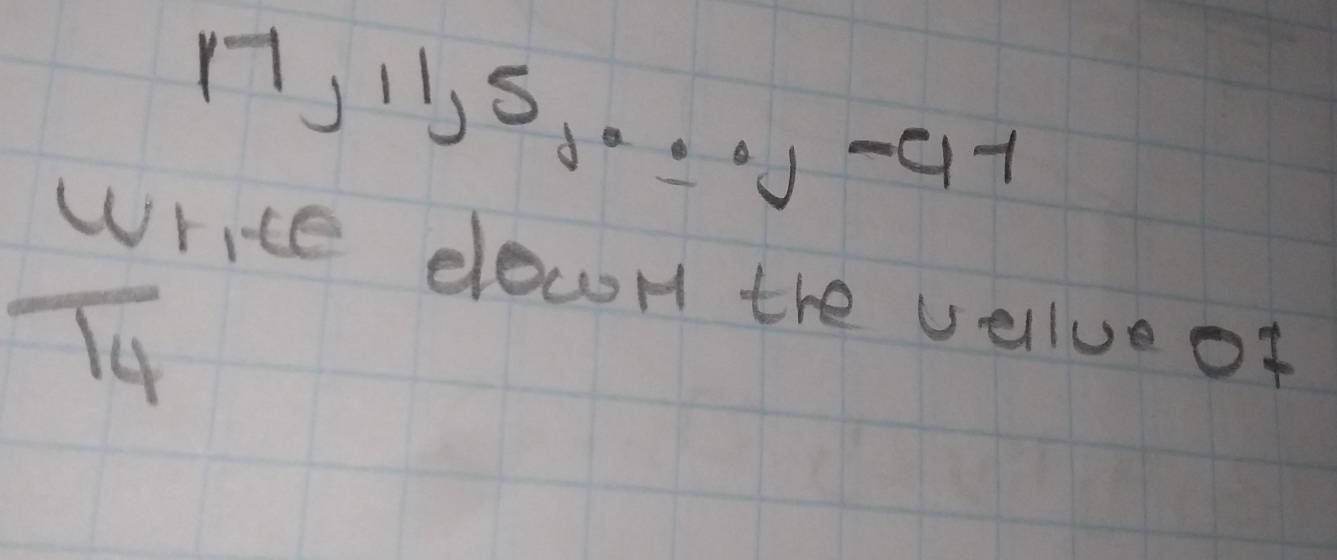 17, 11, 5, ..., -97
Write down the value of
T4